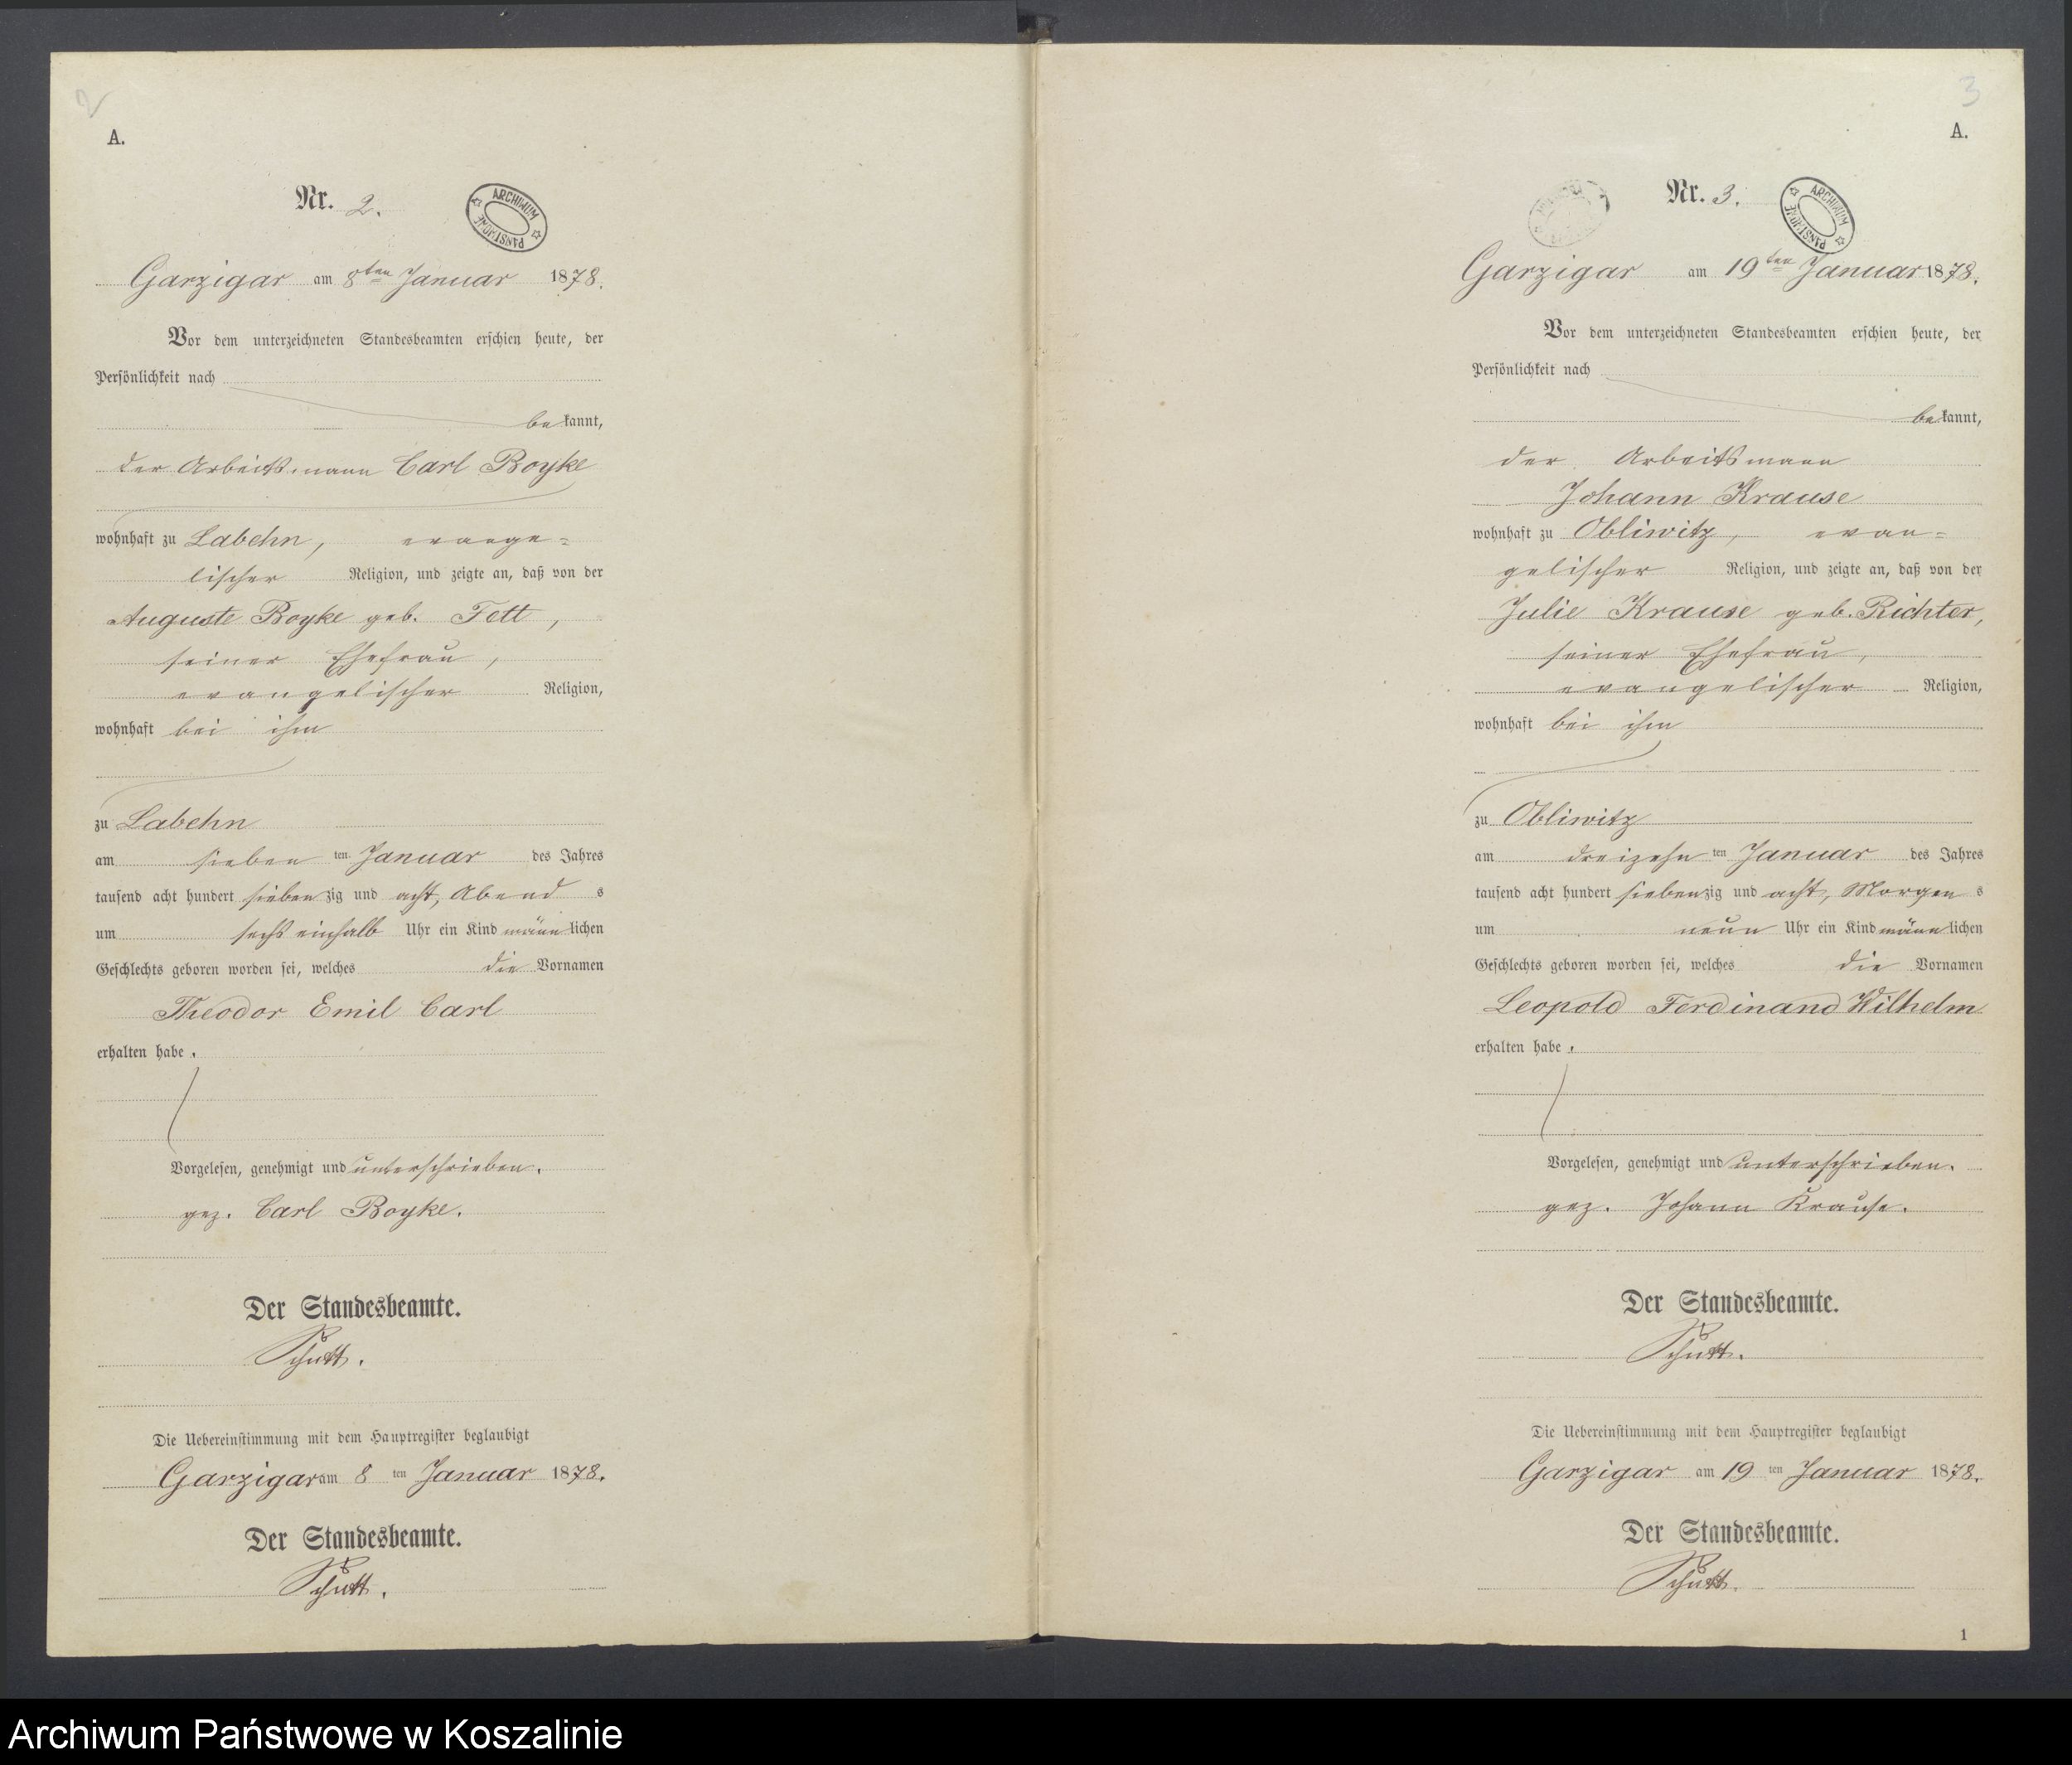 2
A.
Nr. 2.
ARCHIWUM PAŃSTWOWE
Garzigar am 8ten Januar 1878.
Vor dem unterzeichneten Standesbeamten erschien heute, der
Persönlichkeit nach
bekannt,
der Arbeitsmann Carl Boyke
wohnhaft zu Labehn, evange=
lischer Religion, und zeigte an, daß von der
Auguste Boyke geb. Fett,
seiner Ehefrau,
evangelischer Religion,
wohnhaft bei ihm
zu Labehn
am sieben ten Januar des Jahres
tausend acht hundert siebenzig und acht, Abends
um sechs einhalb Uhr ein Kind männlichen
Geschlechts geboren worden sei, welches die Vornamen
Theodor Emil Carl
erhalten habe.
Vorgelesen, genehmigt und unterschrieben.
gez. Carl Boyke.
Der Standesbeamte.
Schutt.
Die Uebereinstimmung mit dem Hauptregister beglaubigt
Garzigar am 8 ten Januar 1878.
Der Standesbeamte.
Schutt.
3
A.
Nr. 3.
ARCHIWUM PAŃSTWOWE
Garzigar am 19ten Januar 1878.
Vor dem unterzeichneten Standesbeamten erschien heute, der
Persönlichkeit nach
bekannt,
der Arbeitsmann
Johann Krause
wohnhaft zu Obliwitz, evan=
gelischer Religion, und zeigte an, daß von der
Julie Krause geb. Richter,
seiner Ehefrau,
evangelischer Religion,
wohnhaft bei ihm
zu Obliwitz
am dreizehn ten Januar des Jahres
tausend acht hundert siebenzig und acht, Morgens
um neun Uhr ein Kind männlichen
Geschlechts geboren worden sei, welches die Vornamen
Leopold Ferdinand Wilhelm
erhalten habe.
Vorgelesen, genehmigt und unterschrieben.
gez. Johann Krause.
Der Standesbeamte.
Schutt.
Die Uebereinstimmung mit dem Hauptregister beglaubigt
Garzigar am 19 ten Januar 1878.
Der Standesbeamte.
Schutt.
1
Archiwum Państwowe w Koszalinie